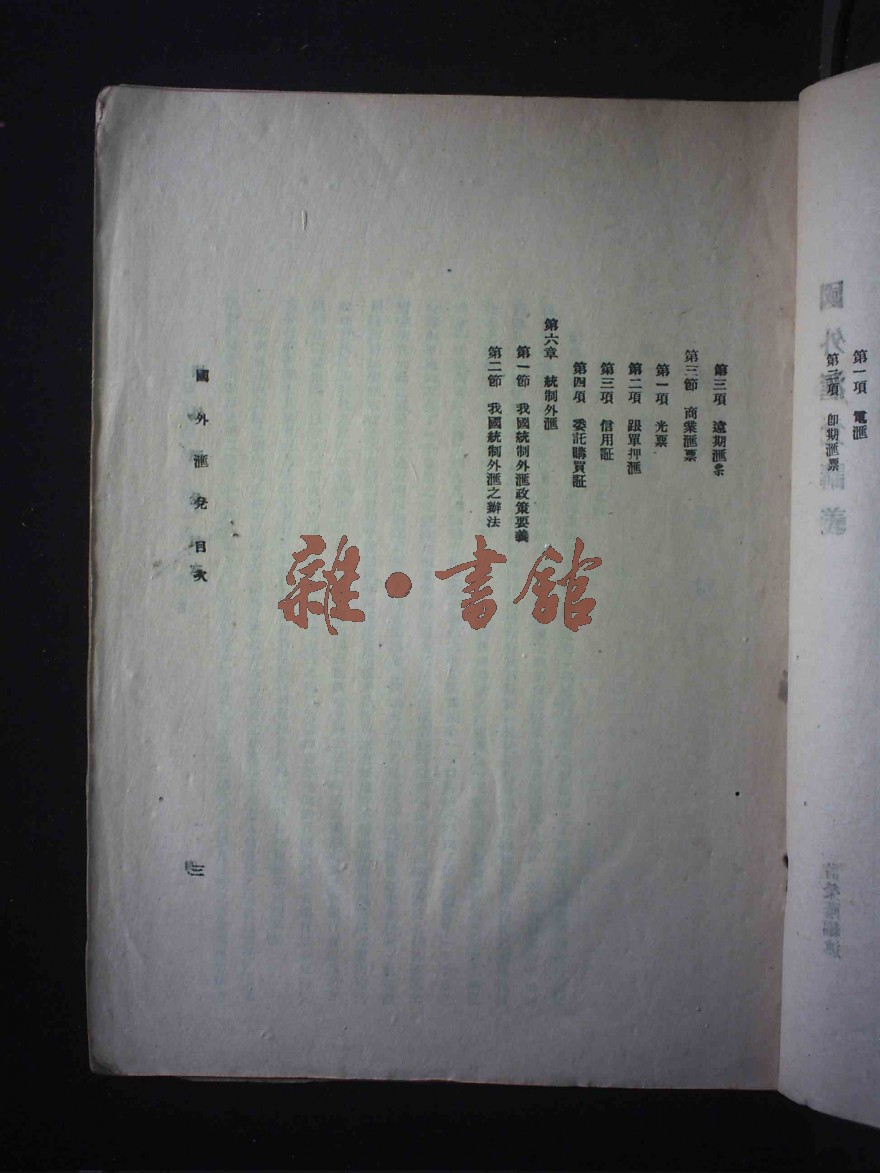 第一項 電滙
第二項 即期滙票
第三項 遠期滙票
第三節 商業滙票
第一項 光票
第二項 跟單押滙
第三項 信用証
第四項 委託購買証
第六章 統制外滙
第一節 我國統制外滙政策要義
第二節 我國統制外滙之辦法
國外滙兌目次
三
雜·書館